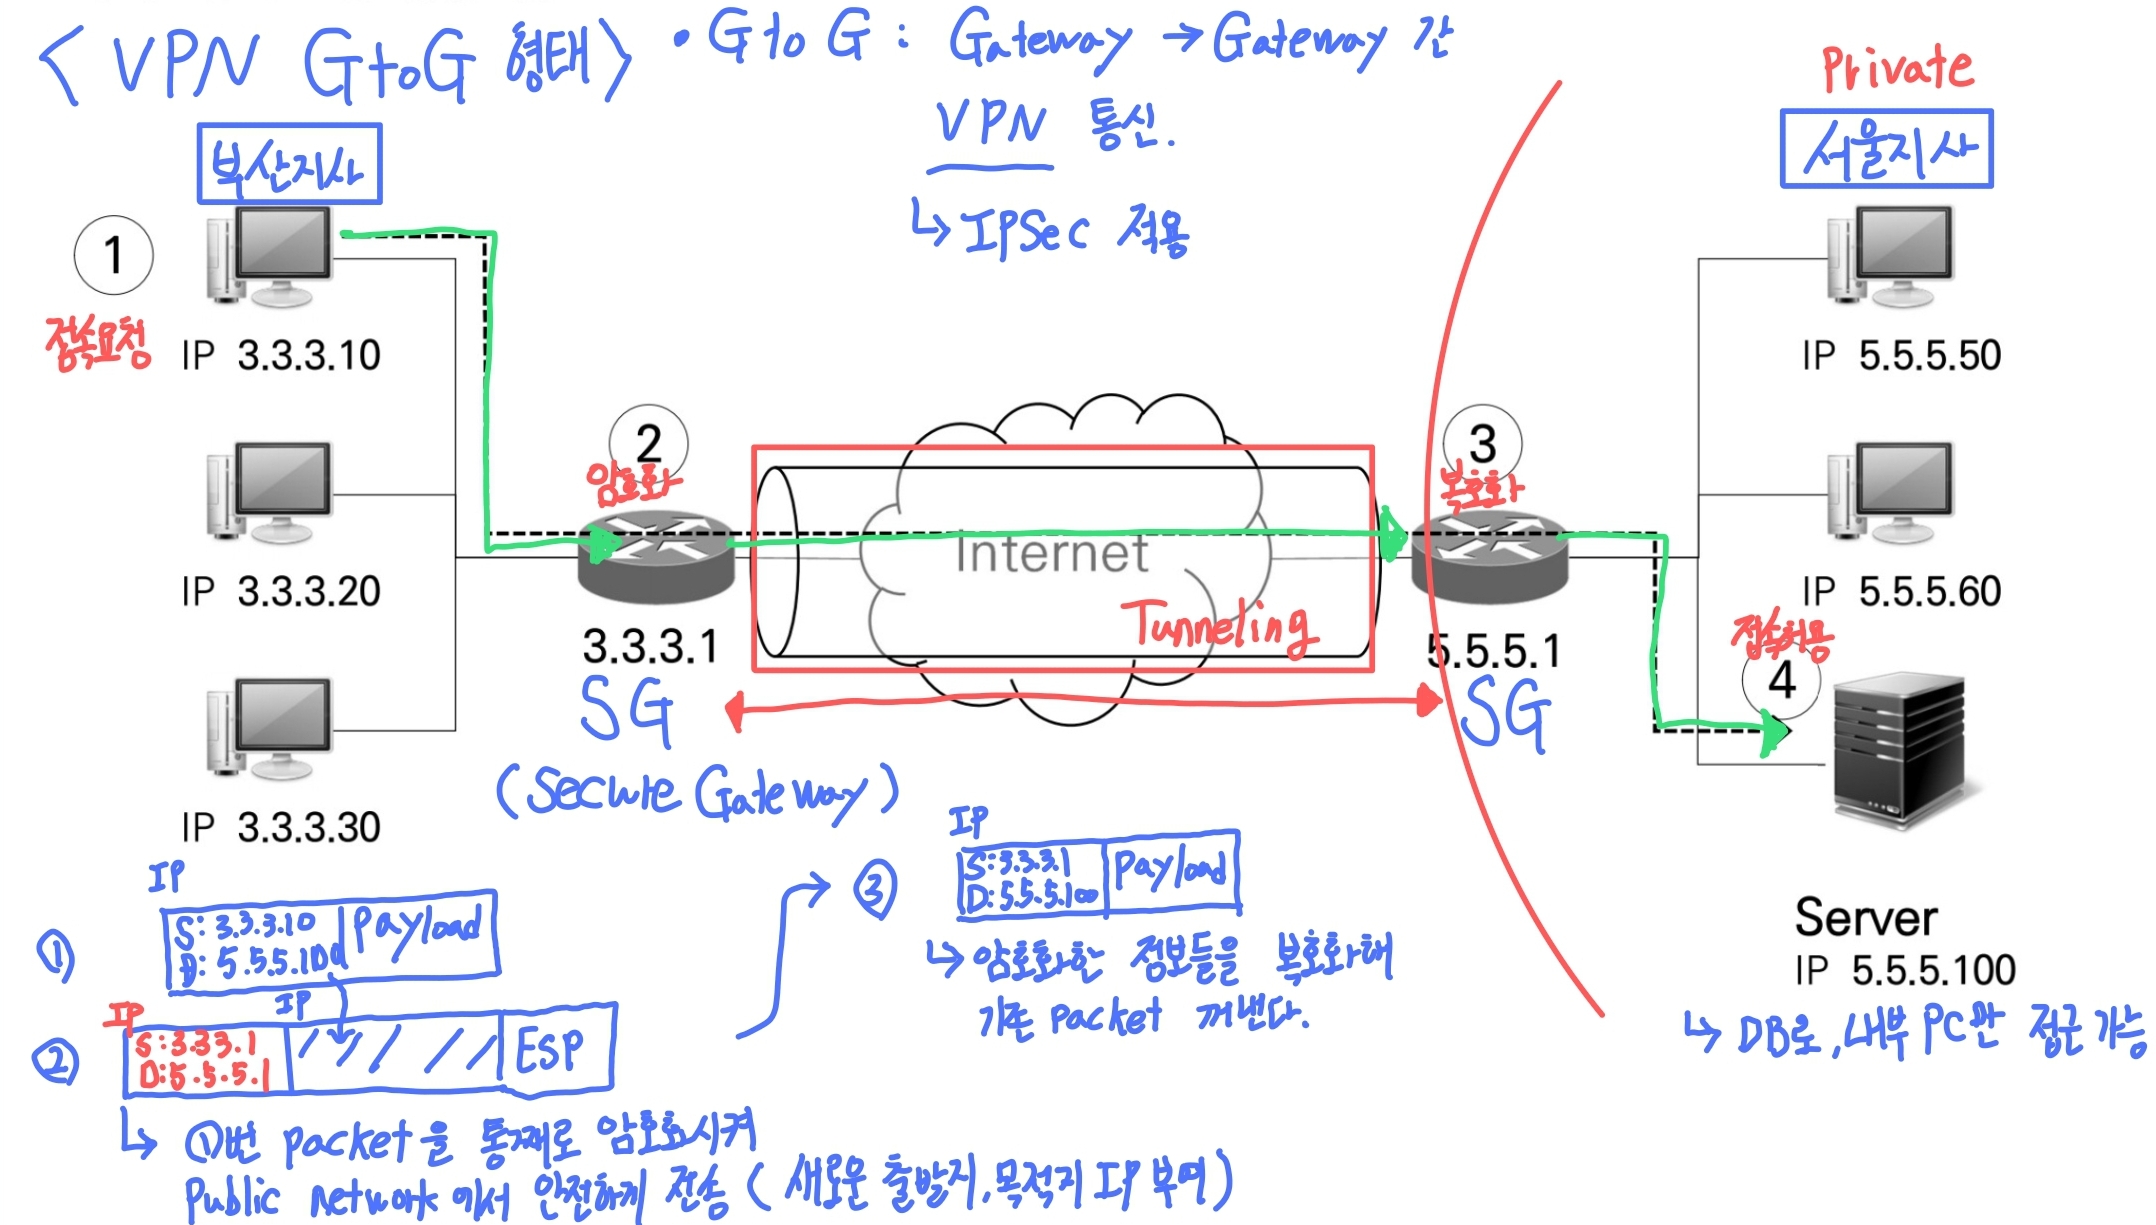 <VPN GtoG 형태>
• G to G : Gateway → Gateway 간
VPN 통신.
↳ IPSec 적용
Private
부산지사
서울지사
1
접속요청
IP 3.3.3.10
IP 3.3.3.20
IP 3.3.3.30
2
암호화
3.3.3.1
SG
(Secure Gateway)
Internet
Tunneling
3
복호화
5.5.5.1
SG
IP 5.5.5.50
IP 5.5.5.60
접속허용
4
Server
IP 5.5.5.100
↳ DB로, 내부 PC만 접근 가능
IP
① S: 3.3.3.10 Payload
D: 5.5.5.100
IP IP
② S:3.3.3.1 ESP
D:5.5.5.1
↳ ①번 packet을 통째로 암호화시켜
Public network에서 안전하게 전송 (새로운 출발지, 목적지 IP 부여)
IP
③ S:3.3.3.1 Payload
D:5.5.5.100
↳ 암호화한 정보들을 복호화해
기존 packet 꺼낸다.